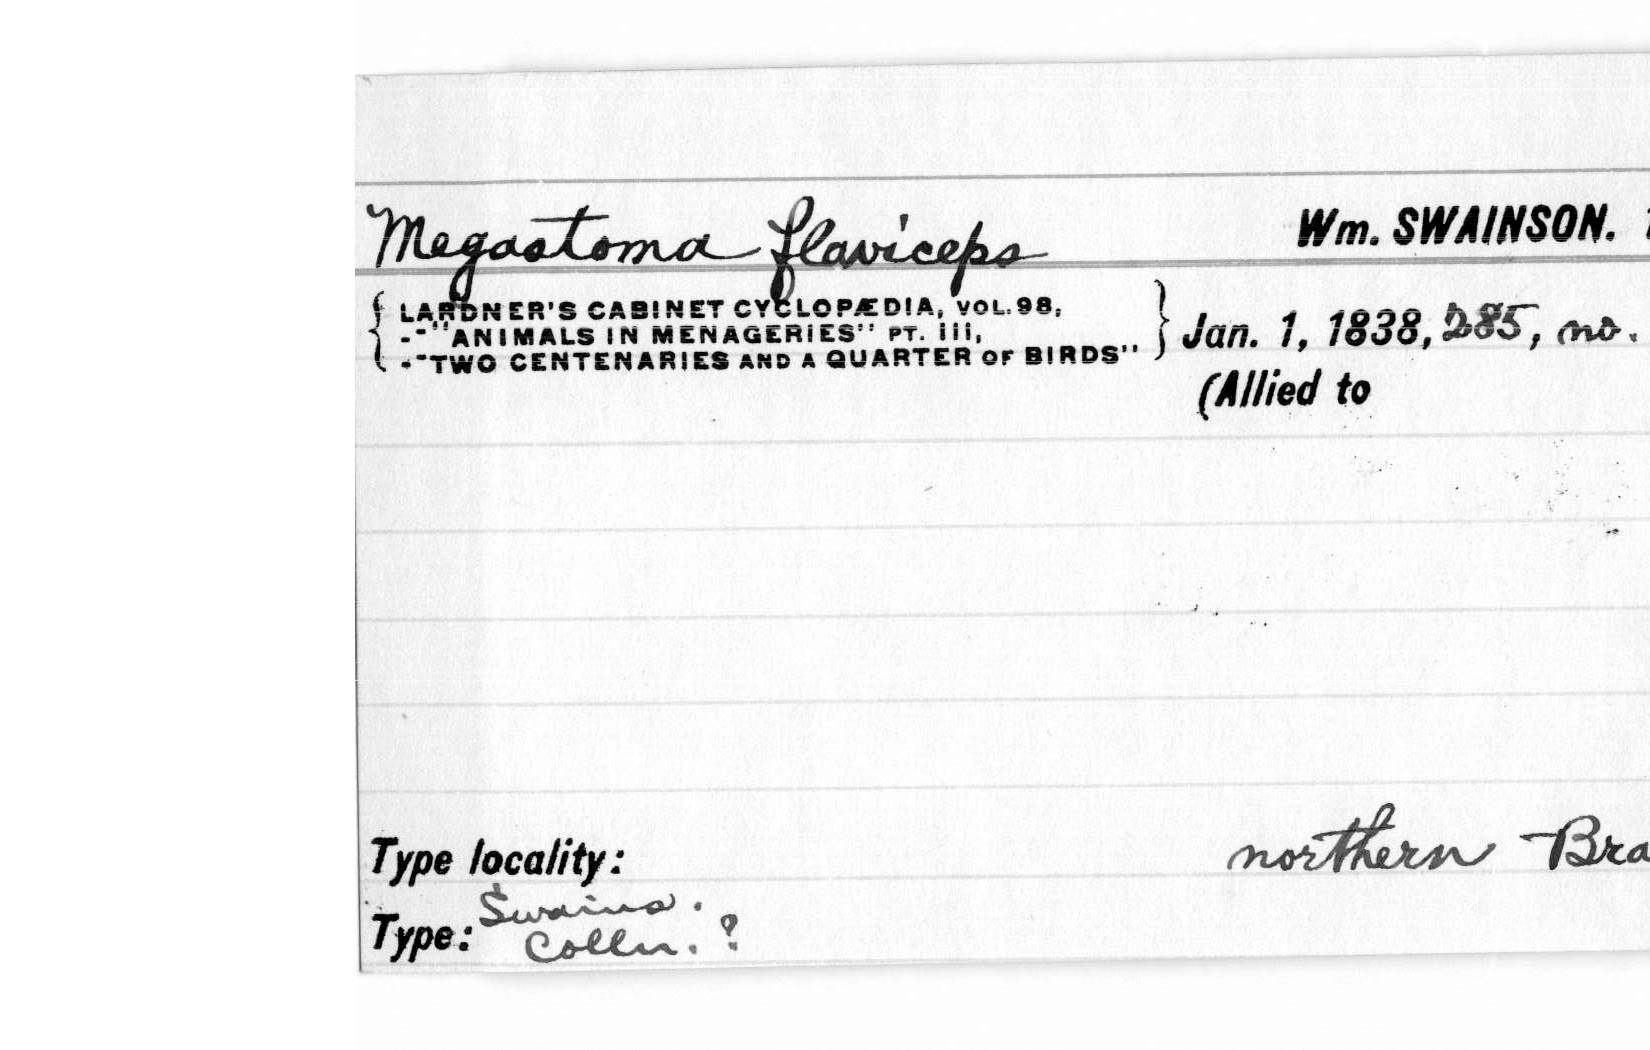 Megastoma flaviceps Wm. SWAINSON.
LARDNER'S CABINET CYCLOPÆDIA, VOL. 98,
-"ANIMALS IN MENAGERIES" PT. iii,
-"TWO CENTENARIES AND A QUARTER OF BIRDS"
Jan. 1, 1838, 285, no.
(Allied to
Type locality: northern Bra
Type: Swains.
Colln. ?